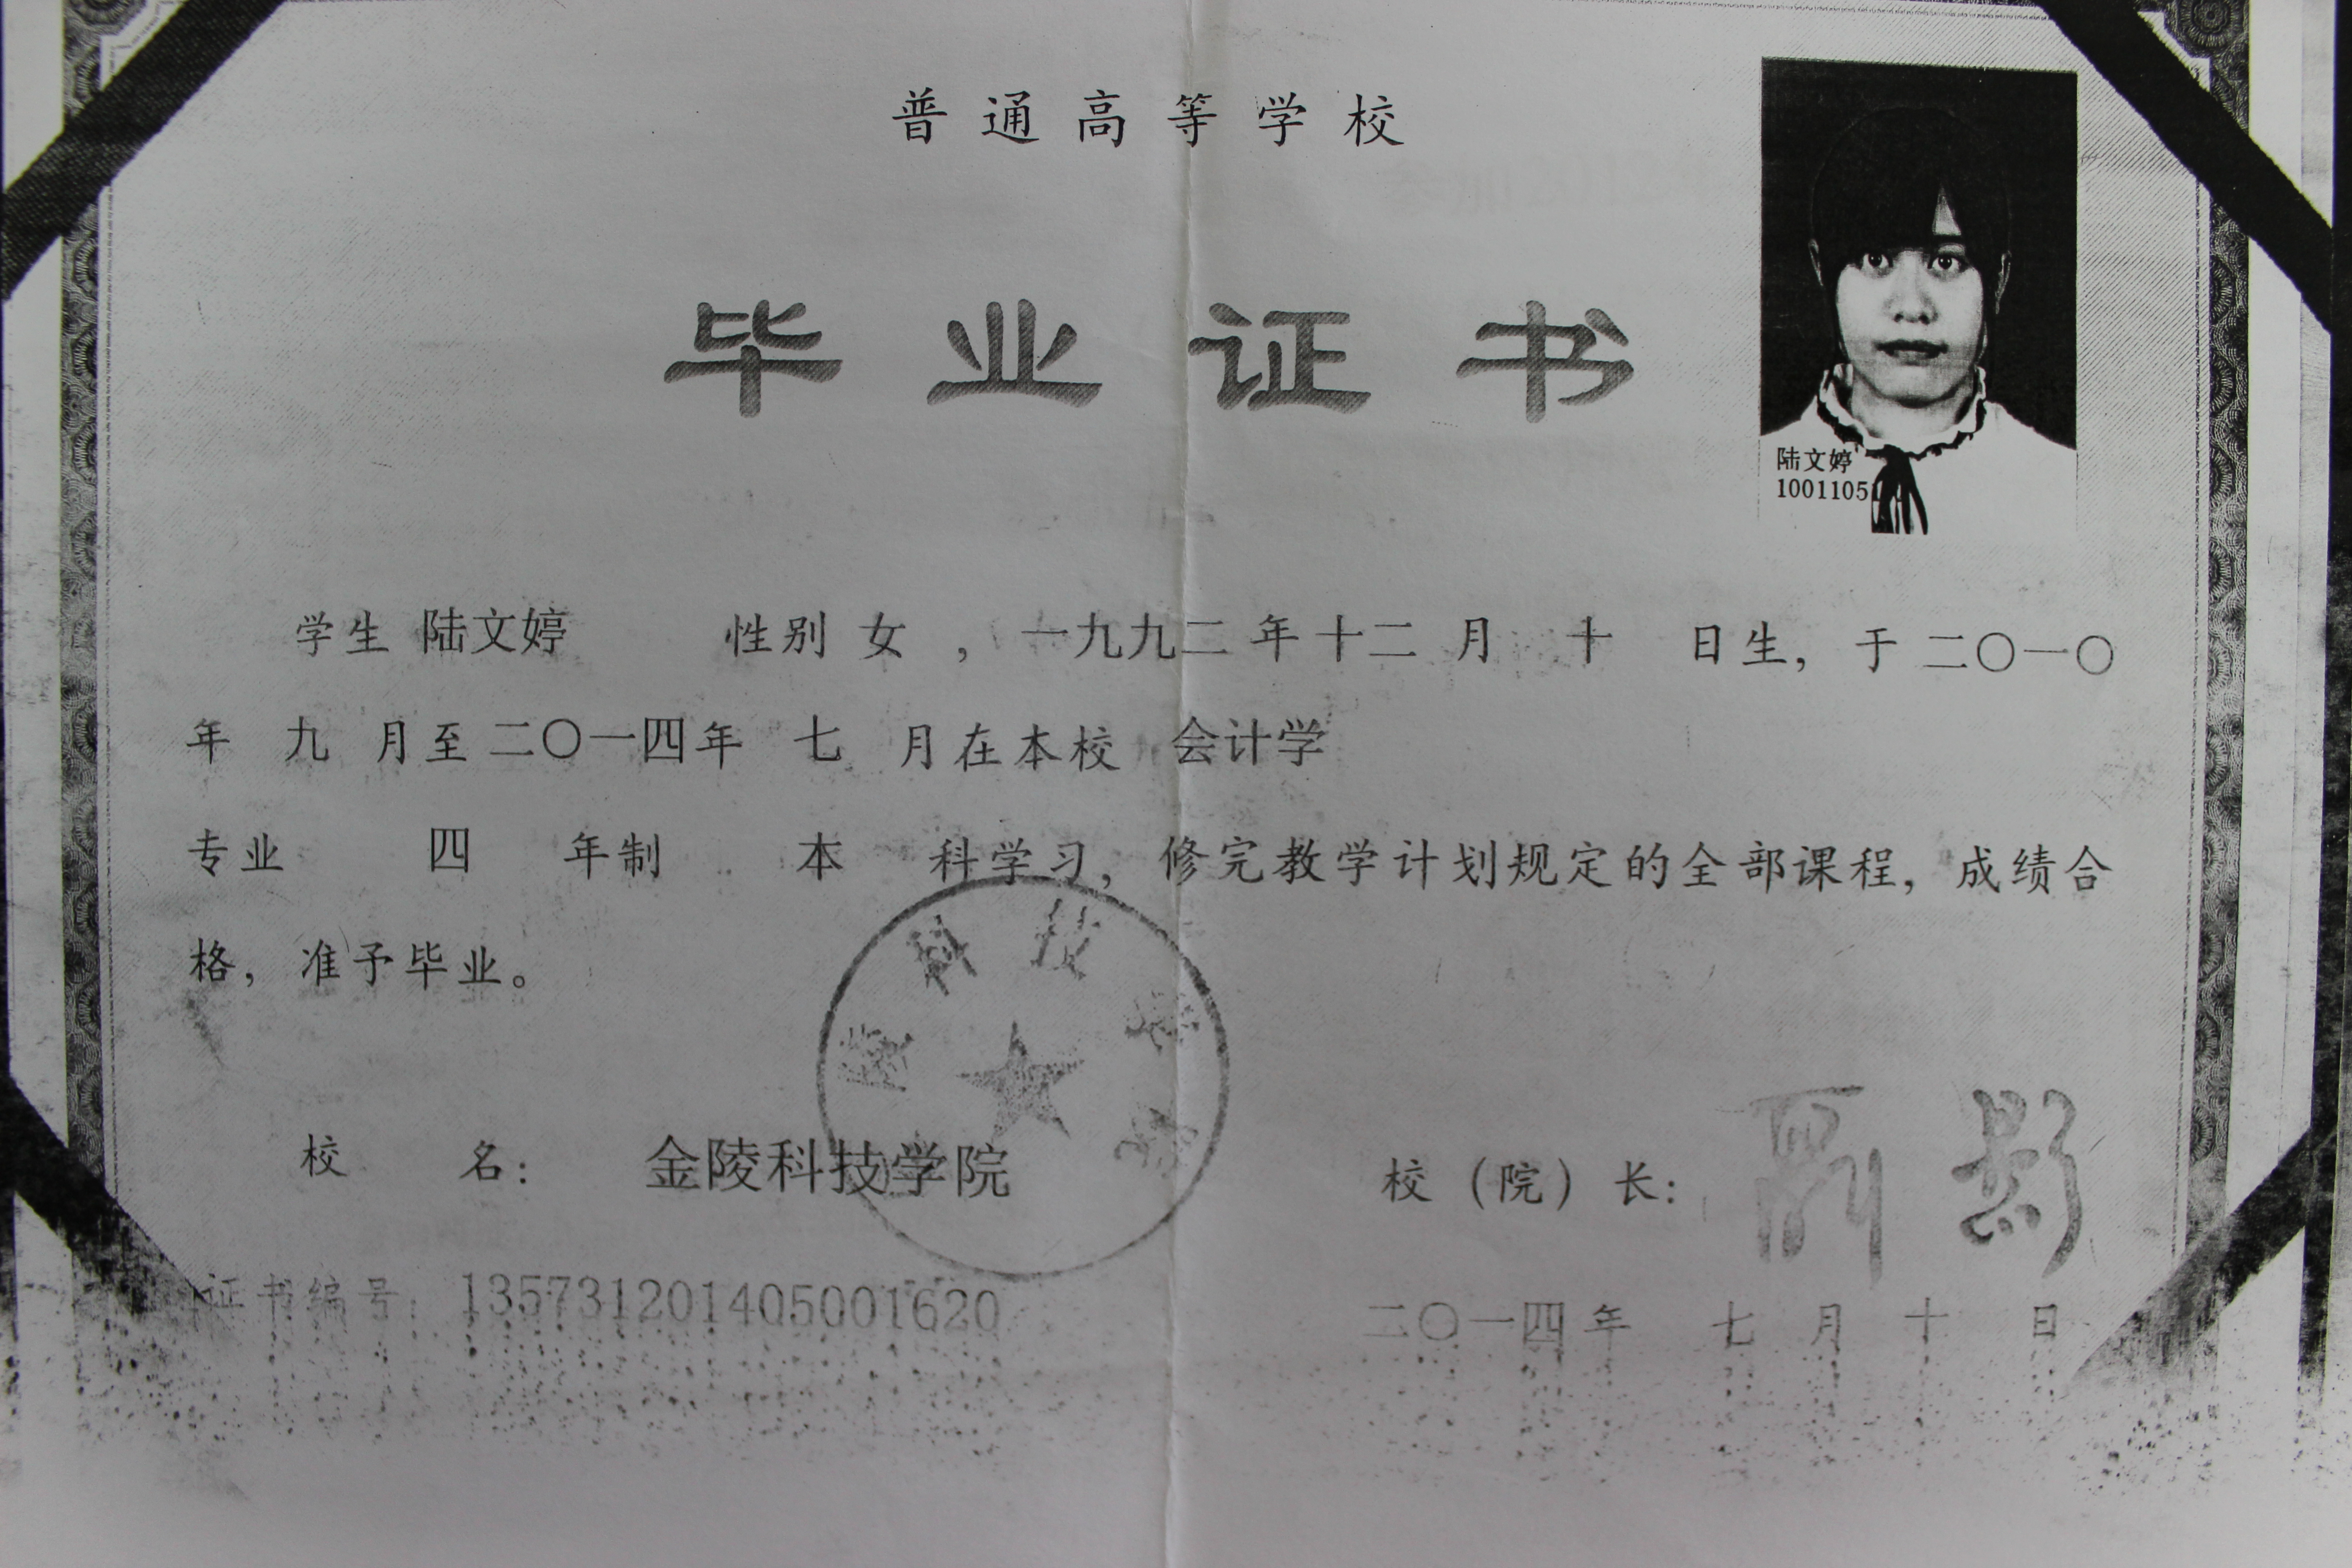 普通高等学校
毕业证书
陆文婷
1001105
学生 陆文婷 性别 女 ，一九九二 年 十二 月 十 日生，于 二〇一〇
年 九 月至 二〇一四年 七 月在本校 会计学
专业 四 年制 本 科学习，修完教学计划规定的全部课程，成绩合
格，准予毕业。
科技
校 名： 金陵科技学院
校（院）长：
证书编号：135731201405001620
二〇一四年 七 月 十 日